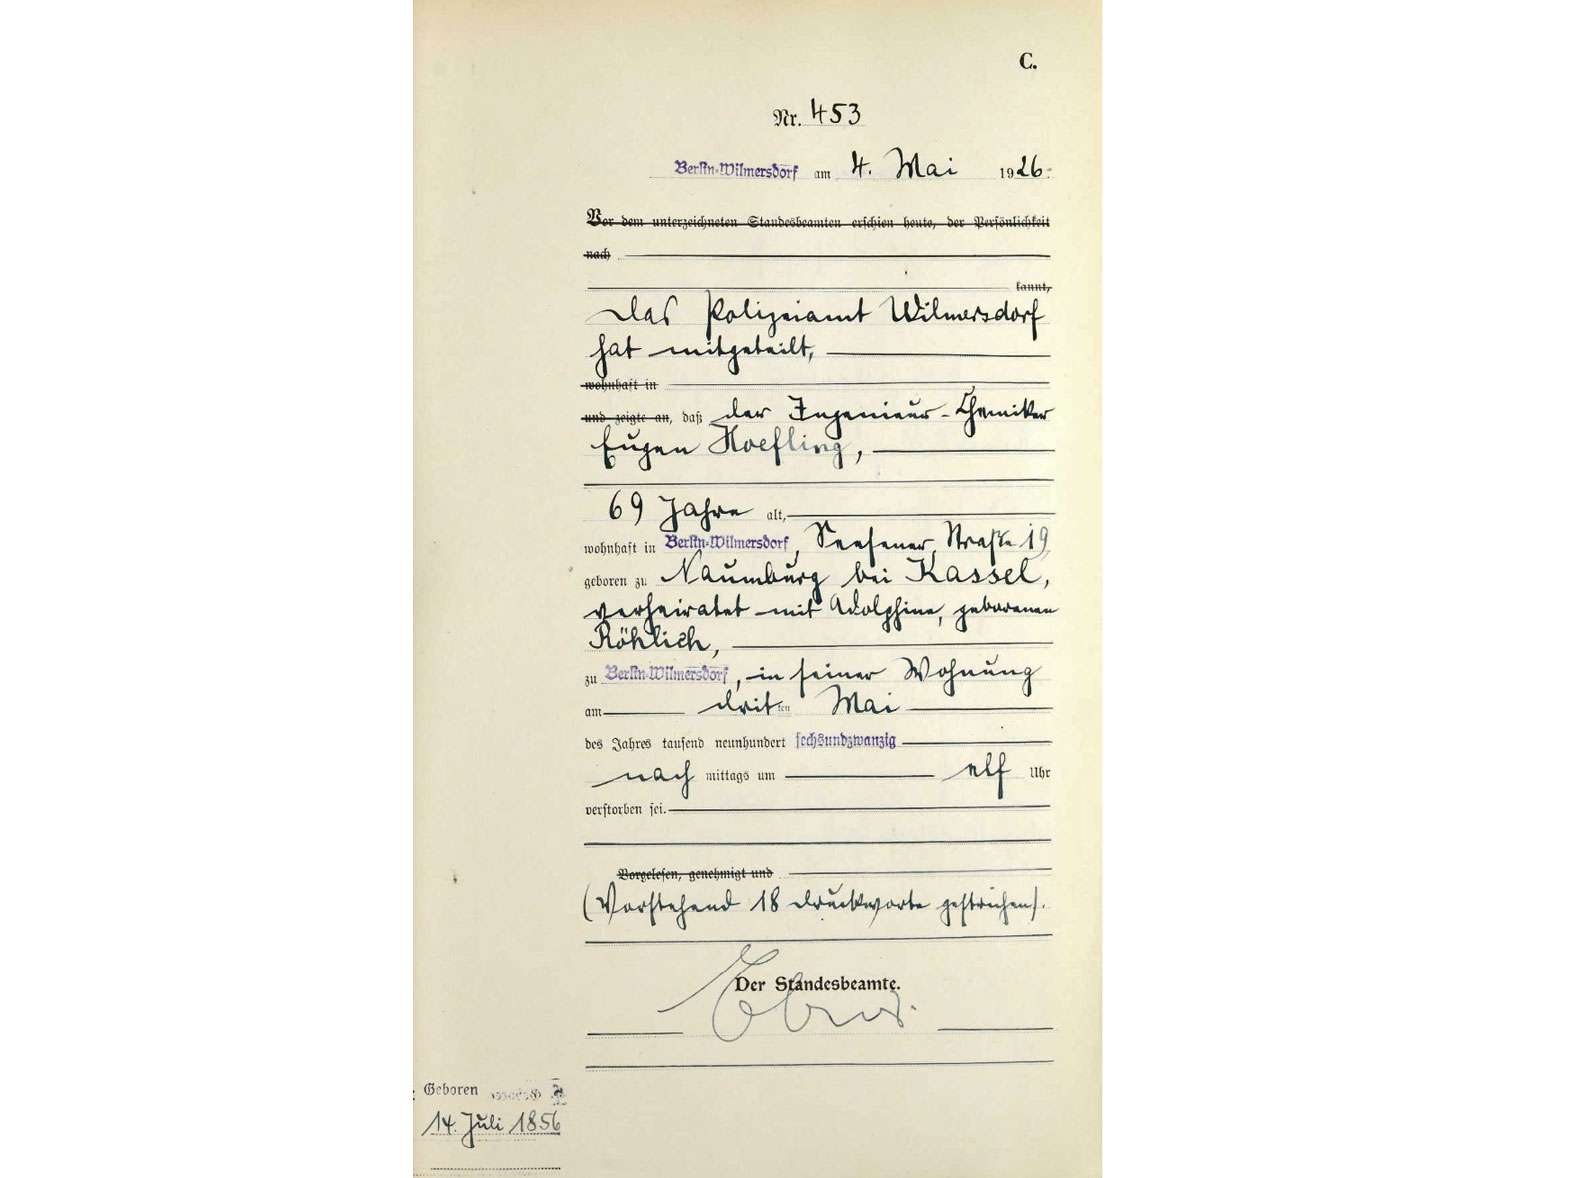 C.
Nr. 453
Berlin-Wilmersdorf am 4. Mai 1926.
Vor dem unterzeichneten Standesbeamten erschien heute, der Persönlichkeit
nach
kannt,
Das Polizeiamt Wilmersdorf
hat mitgeteilt,
wohnhaft in
und zeigte an, daß der Ingenieur-Chemiker
Eugen Hoefling,
69 Jahre alt,
wohnhaft in Berlin-Wilmersdorf, Seesener Straße 19,
geboren zu Naumburg bei Kassel,
verheiratet mit Adolphine, geborenen
Röhlich,
zu Berlin-Wilmersdorf, in seiner Wohnung
am dritten Mai
des Jahres tausend neunhundert sechsundzwanzig
nach mittags um elf Uhr
verstorben sei.
Vorgelesen, genehmigt und
(Vorstehend 18 Druckworte gestrichen).
Der Standesbeamte.
Geboren
14. Juli 1856